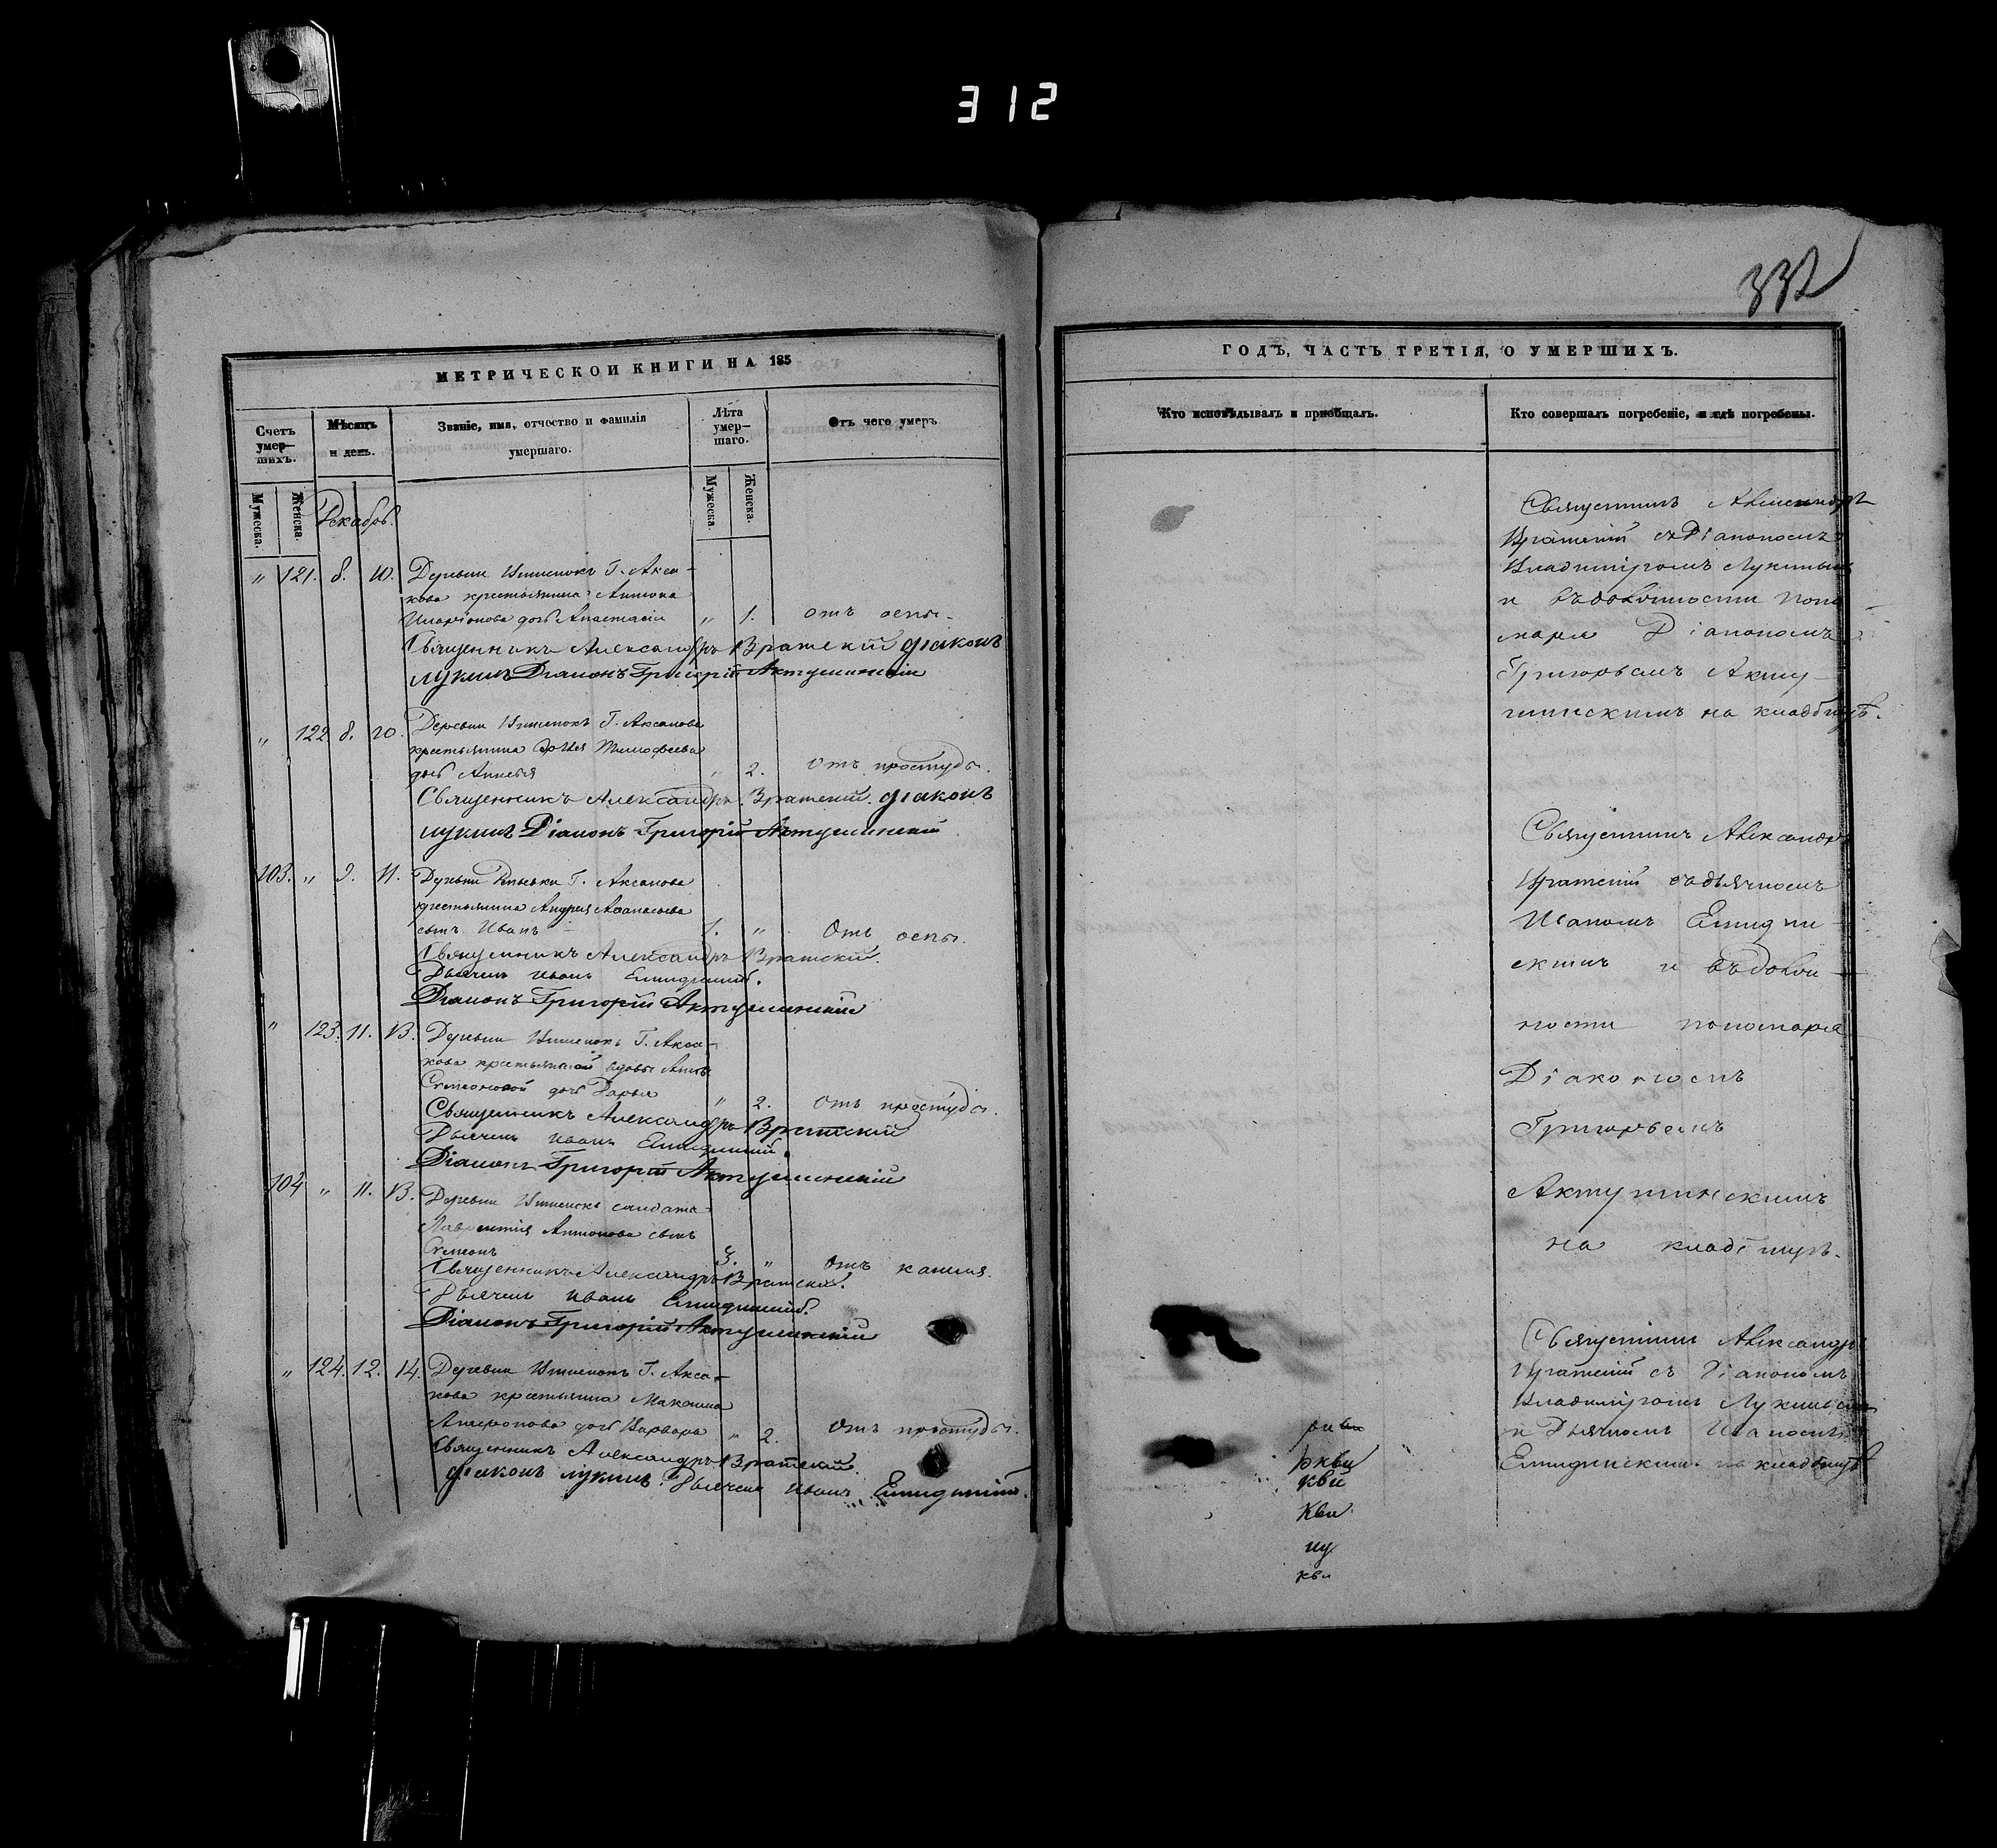 312
332
МЕТРИЧЕСКОЙ КНИГИ НА 185
Счетъ умерших.
Мѣсяцъ и день.
Званіе, имя, отчество и фамилія умершаго.
Лѣта умершаго.
Отъ чего умеръ
Мужеска.
Женска.
Мужеска.
Женска.
Декабрь.
„ 121. 8. 10. Деревни Г. Акса-
кова крестьянина Антона
дочь Анастасія „ 1. отъ оспы.
Священникъ Александръ Вратскій діаконъ
Лукинъ Діаконъ Григорій Актушинскій
„ 122. 8. 10. Деревни Г. Аксакова
крестьянина Тимофеева
дочь „ 2. отъ простуды.
Священникъ Александръ Вратскій. діаконъ
лукинъ Діаконъ Григорій Актушинскій
103. „ 9. 11. Деревни Г. Аксакова
крестьянина Андрея Аѳанасьева
сынъ Иванъ 1. „ Отъ оспы.
Священникъ Александръ Вратскій.
Дьячекъ Иванъ
Діаконъ Григорій Актушинскій
„ 123. 11. 13. Деревни Г. Акса-
кова крестьянской вдовы
Семеновой дочь Дарья „ 2. отъ простуды.
Священникъ Александръ Вратскій
Дьячекъ Иванъ
Діаконъ Григорій Актушинскій
104 „ 11. 13. Деревни солдата
Лаврентія Антонова сынъ
Семеонъ 3. „ отъ кашля.
Священникъ Александръ Вратскій.
Дьячекъ Иванъ
Діаконъ Григорій Актушинскій
„ 124. 12. 14. Деревни Г. Акса-
кова крестьянина Максима
дочь Варвара „ 2. отъ простуды.
Священникъ Александръ Вратскій
діаконъ лукинъ. Дьячекъ Иванъ
ГОДЪ, ЧАСТЬ ТРЕТІЯ, О УМЕРШИХЪ.
Кто исповѣдывалъ и пріобщалъ.
Кто совершалъ погребеніе, и гдѣ погребены.
Священникъ Александръ
Вратскій съ Діакономъ
Владиміромъ Лукинымъ
и въ должности поно-
маря Діакономъ
Григорьемъ Акту-
шинскимъ на кладбищѣ.
Священникъ Александръ
Вратскій съ дьячкомъ
Иваномъ
и въ долж-
ности пономаря
Діакономъ
Григорьемъ
Актушинскимъ
на кладбищѣ.
Священникъ Александръ
Вратскій съ Діакономъ
Владиміромъ Лукинымъ
и Дьячкомъ Иваномъ
на кладбищѣ